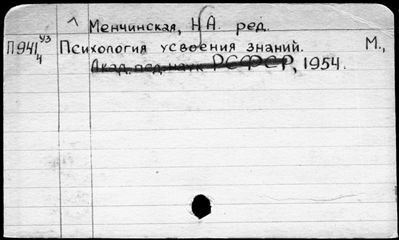 Менчинская, Н.А. ред.
П941 уз Психология усвоения знаний. М.,
4 Акад. пед. наук РСФСР, 1954.